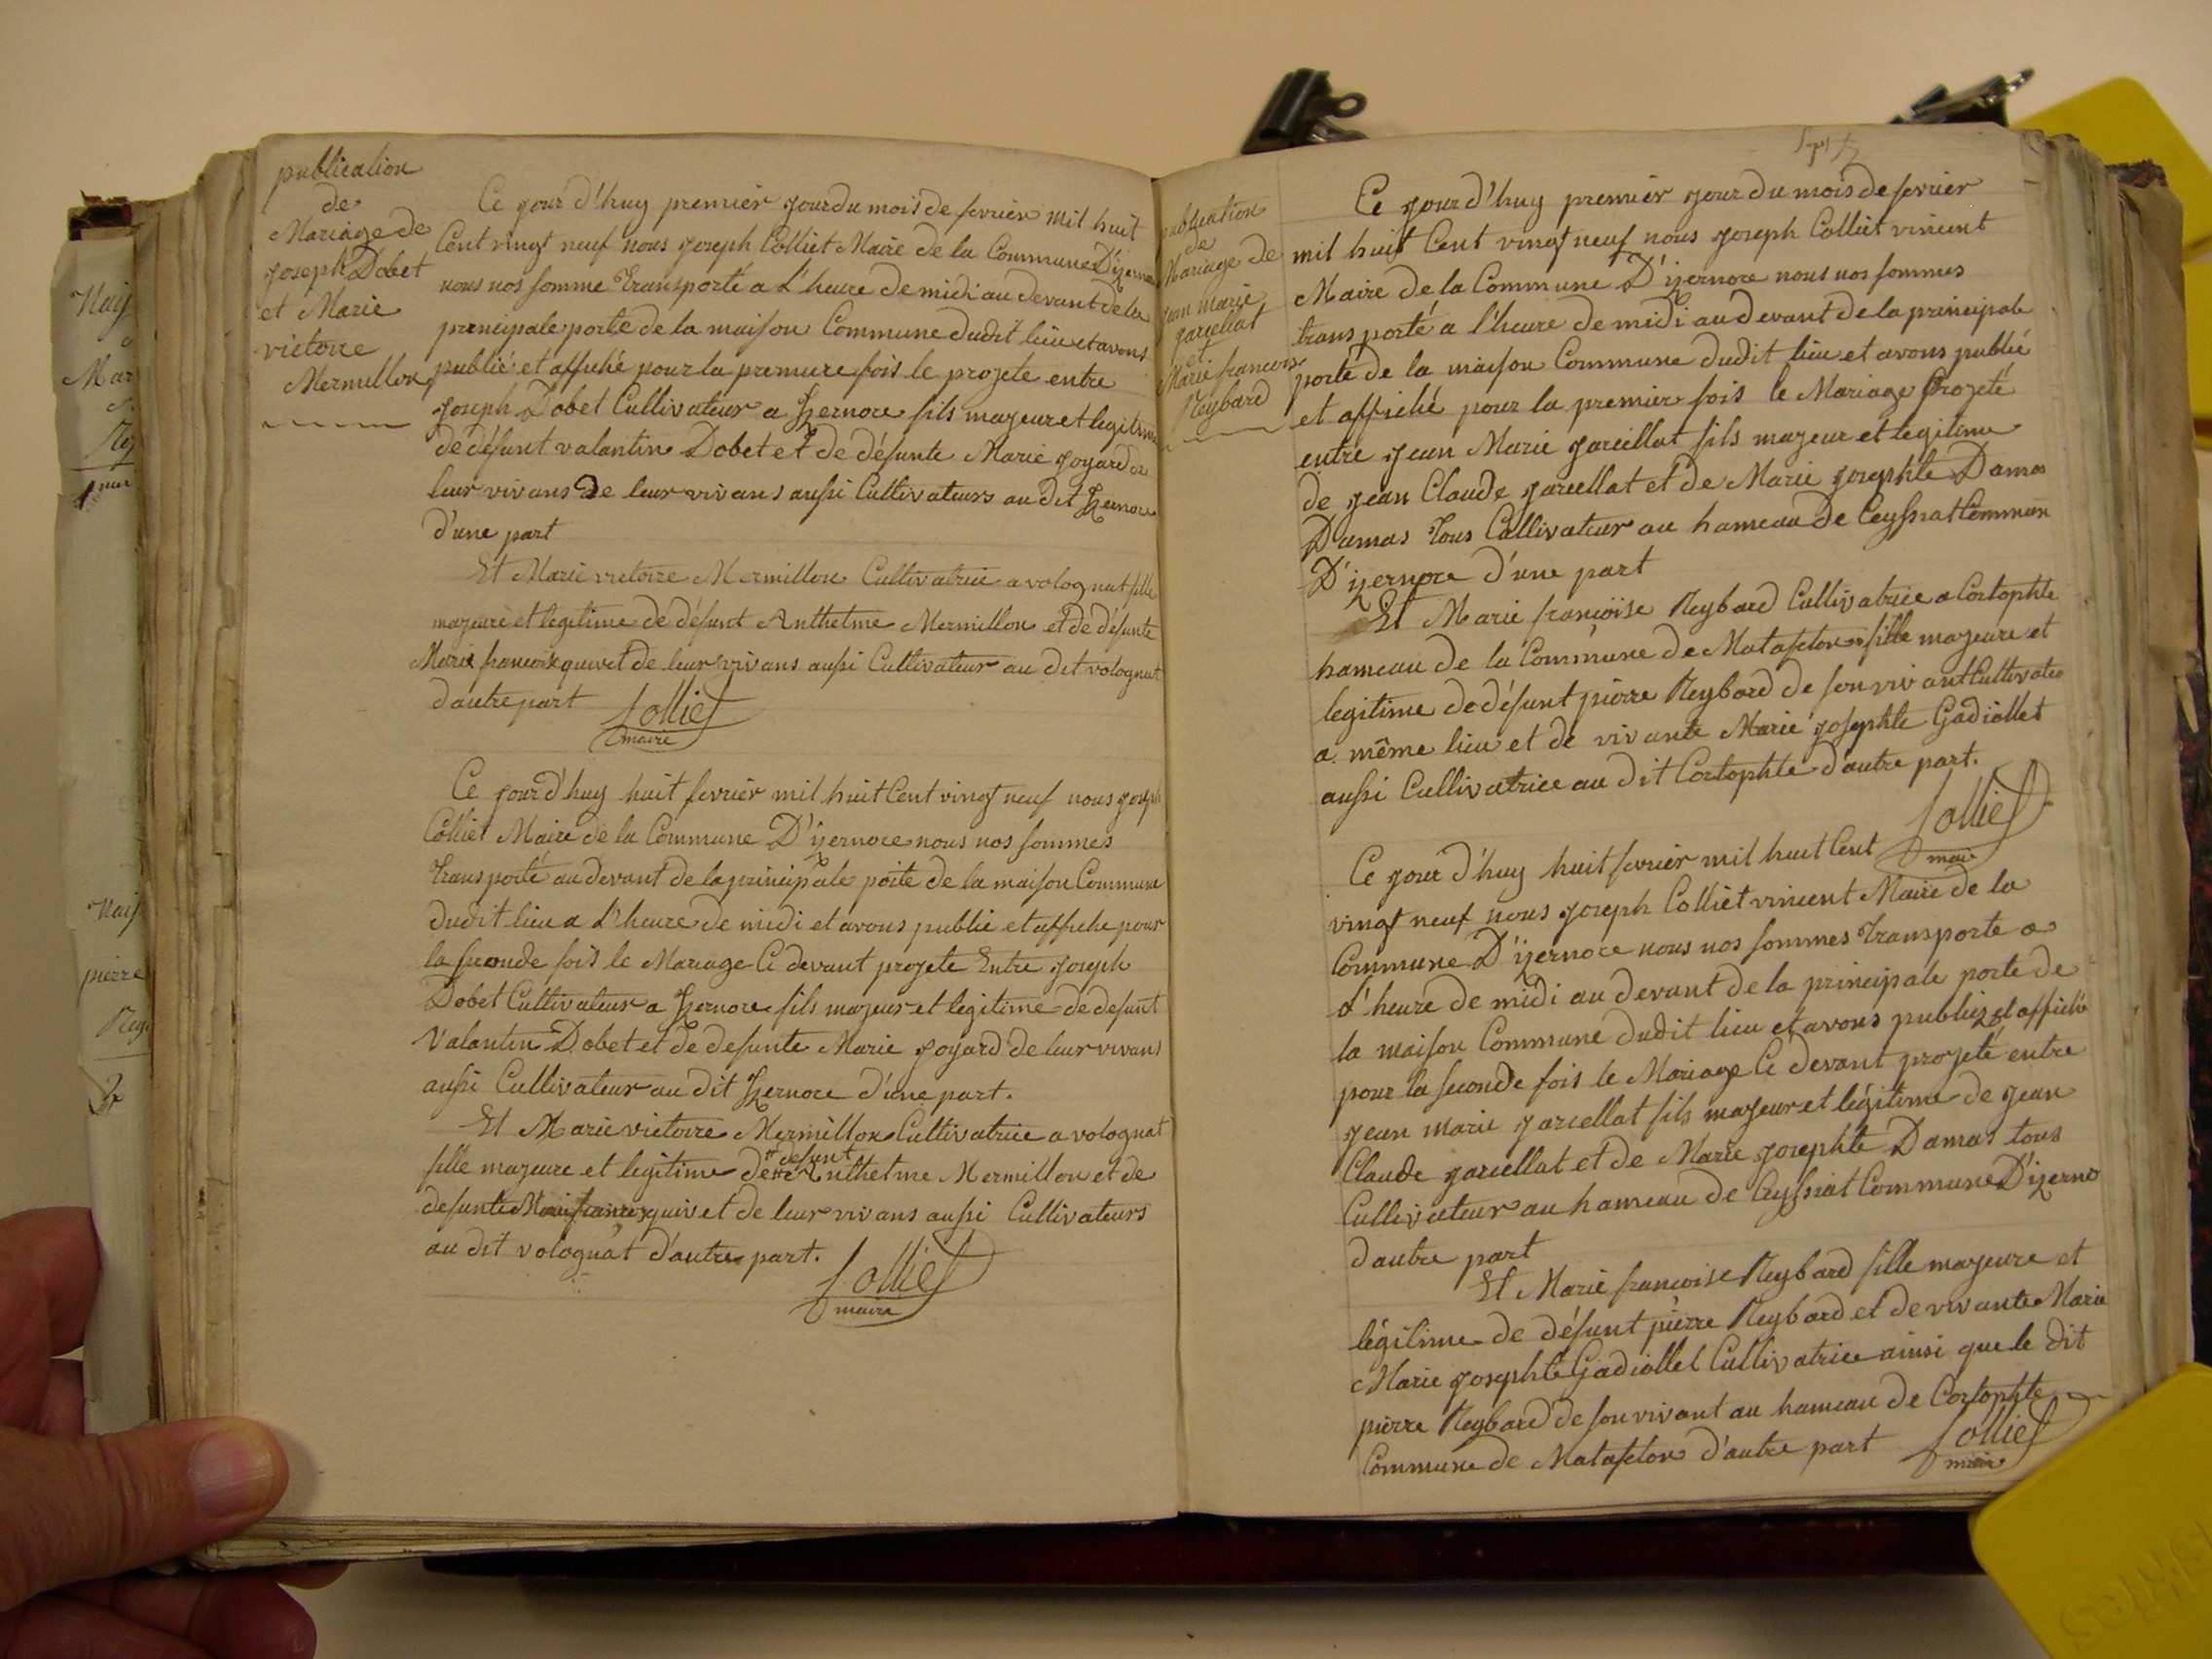 publication
de
Mariage de
joseph Dobet
et Marie
victoire
Mermillon
Ce jour d'huy premier jour du mois de fevrier mil huit
Cent vingt neuf nous joseph Colliet Maire de la Commune D'izernore
nous nos somme Transporté a L'heure de midi au devant de la
principale porte de la maison Commune dudit lieu et avons
publié et affiché pour la premiere fois le projeté entre
joseph Dobet Cultivateur a Izernore fils majeur et legitime
de défunt valantin Dobet et de défunte Marie goyard de
leur vivans De leur vivans aussi Cultivateurs au dit Izernore
d'une part
Et Marie victoire Mermillon Cultivatrice a volognat fille
majeure et legitime de défunt Anthelme Mermillon et de défunte
Marie francoise quivet de leur vivans aussi Cultivateur au dit volognat
d'autre part
Colliet
maire
Ce jour d'huy huit fevrier mil huit Cent vingt neuf nous joseph
Colliet Maire de la Commune D'izernore nous nos sommes
Transporté au devant de la principale porte de la maison Commune
dudit lieu a L'heure de midi et avons publié et affiche pour
la seconde fois le Mariage Ci devant projeté Entre joseph
Dobet Cultivateur a Izernore fils majeur et legitime de defunt
Valantin Dobet et de defunte Marie goyard de leur vivans
aussi Cultivateur au dit Izernore d'une part.
Et Marie victoire Mermillon Cultivatrice a volognat
fille majeure et legitime de defunt Anthelme Mermillon et de
defunte Marie francoise quivet de leur vivans aussi Cultivateurs
au dit volognat d'autre part.
Colliet
maire
publication
de
Mariage de
jean marie
garcellat
et
Marie francoise
Reybard
Ce jour d'huy premier jour du mois de fevrier
mil huit Cent vingt neuf nous joseph Colliet vincent
Maire de la Commune D'izernore nous nos sommes
transporté a l'heure de midi au devant de la principale
porte de la maison Commune dudit lieu et avons publié
et affiché pour la premier fois le Mariage projeté
entre jean Marie garcellat fils majeur et legitime
de jean Claude garcellat et de Marie josephte Damas
Damas tous Cultivateur au hameau de Ceyssiat Commune
D'izernore d'une part
Et Marie françoise Reybard Cultivatrice a Cortophle
hameau de la Commune de Matafelon fille majeure et
legitime de défunt pierre Reybard de son vivant Cultivateur
a même lieu et de vivante Marie josephte Gadiollet
aussi Cultivatrice au dit Cortophle d'autre part.
Colliet
maire
Ce jour d'huy huit fevrier mil huit Cent
vingt neuf nous joseph Colliet vincent Maire de la
Commune D'izernore nous nos sommes Transporte a
L'heure de midi au devant de la principale porte de
la maison Commune dudit lieu et avons publiez et affiché
pour la seconde fois le Mariage Ci devant projeté entre
jean marie garcellat fils majeur et légitime de jean
Claude garcellat et de Marie josephte Damas tous
Cultivateur au hameau de Ceyssiat Commune D'izerno
d'autre part
Et Marie francoise Reybard fille majeure et
légitime de défunt pierre Reybard et de vivante Marie
Marie josephte Gadiollet Cultivatrice ainsi que le dit
pierre Reybard de son vivant au hameau de Cortophle
Commune de Matafelon d'autre part
Colliet
maire